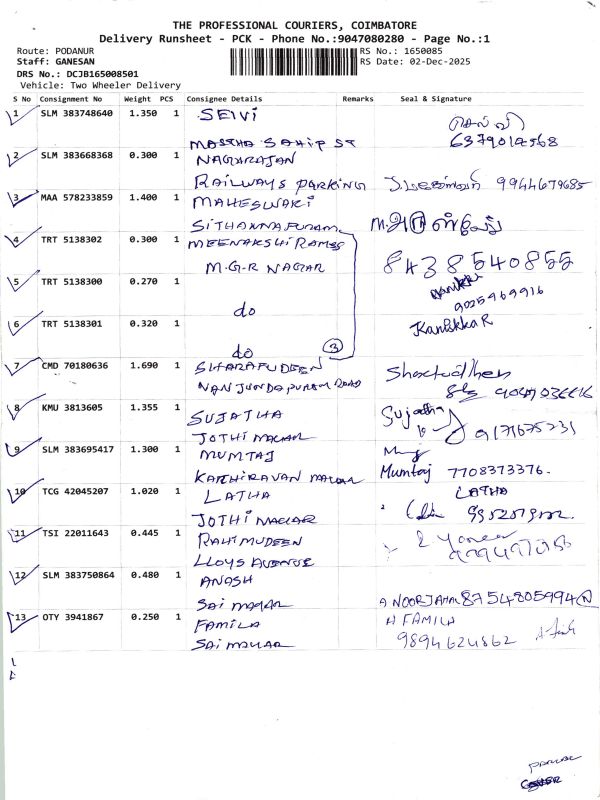 THE PROFESSIONAL COURIERS, COIMBATORE
Delivery Runsheet - PCK - Phone No.:9047080280 - Page No.:1
Route: PODANUR
RS No.: 1650085
Staff: GANESAN
RS Date: 02-Dec-2025
DRS No.: DCJB165008501
Vehicle: Two Wheeler Delivery
S No Consignment No Weight PCS Consignee Details Remarks Seal & Signature
1 SLM 383748640 1.350 1 SELVI செல்வி
MASTHA SAHIP ST 6379012568
2 SLM 383668368 0.300 1 NAGARAJAN
RAILWAYS PARKING 9944679685
3 MAA 578233859 1.400 1 MAHESWARI
SITHANNAPURAM
4 TRT 5138302 0.300 1 MEENAKSHI RAMES
M.G.R NAGAR 8438540855
5 TRT 5138300 0.270 1
do 9025969916
6 TRT 5138301 0.320 1 Kanikka R
do 3
7 CMD 70180636 1.690 1 SHARAFUDEEN
NANJUNDAPURAM ROAD
8 KMU 3813605 1.355 1 SUJATHA Sujatha
JOTHI NAGAR
9 SLM 383695417 1.300 1 MUMTAJ
KATHIRAVAN NAGAR Mumtaj 7708373376.
10 TCG 42045207 1.020 1 LATHA LATHA
JOTHI NAGAR
11 TSI 22011643 0.445 1 RAHIMUDEEN
LLOYS AVENUE
12 SLM 383750864 0.480 1 ANASH
SAI NAGAR A NOORJAHAN 8754805994
13 OTY 3941867 0.250 1 FAMILA A FAMILA
SAI NAGAR 9894624862